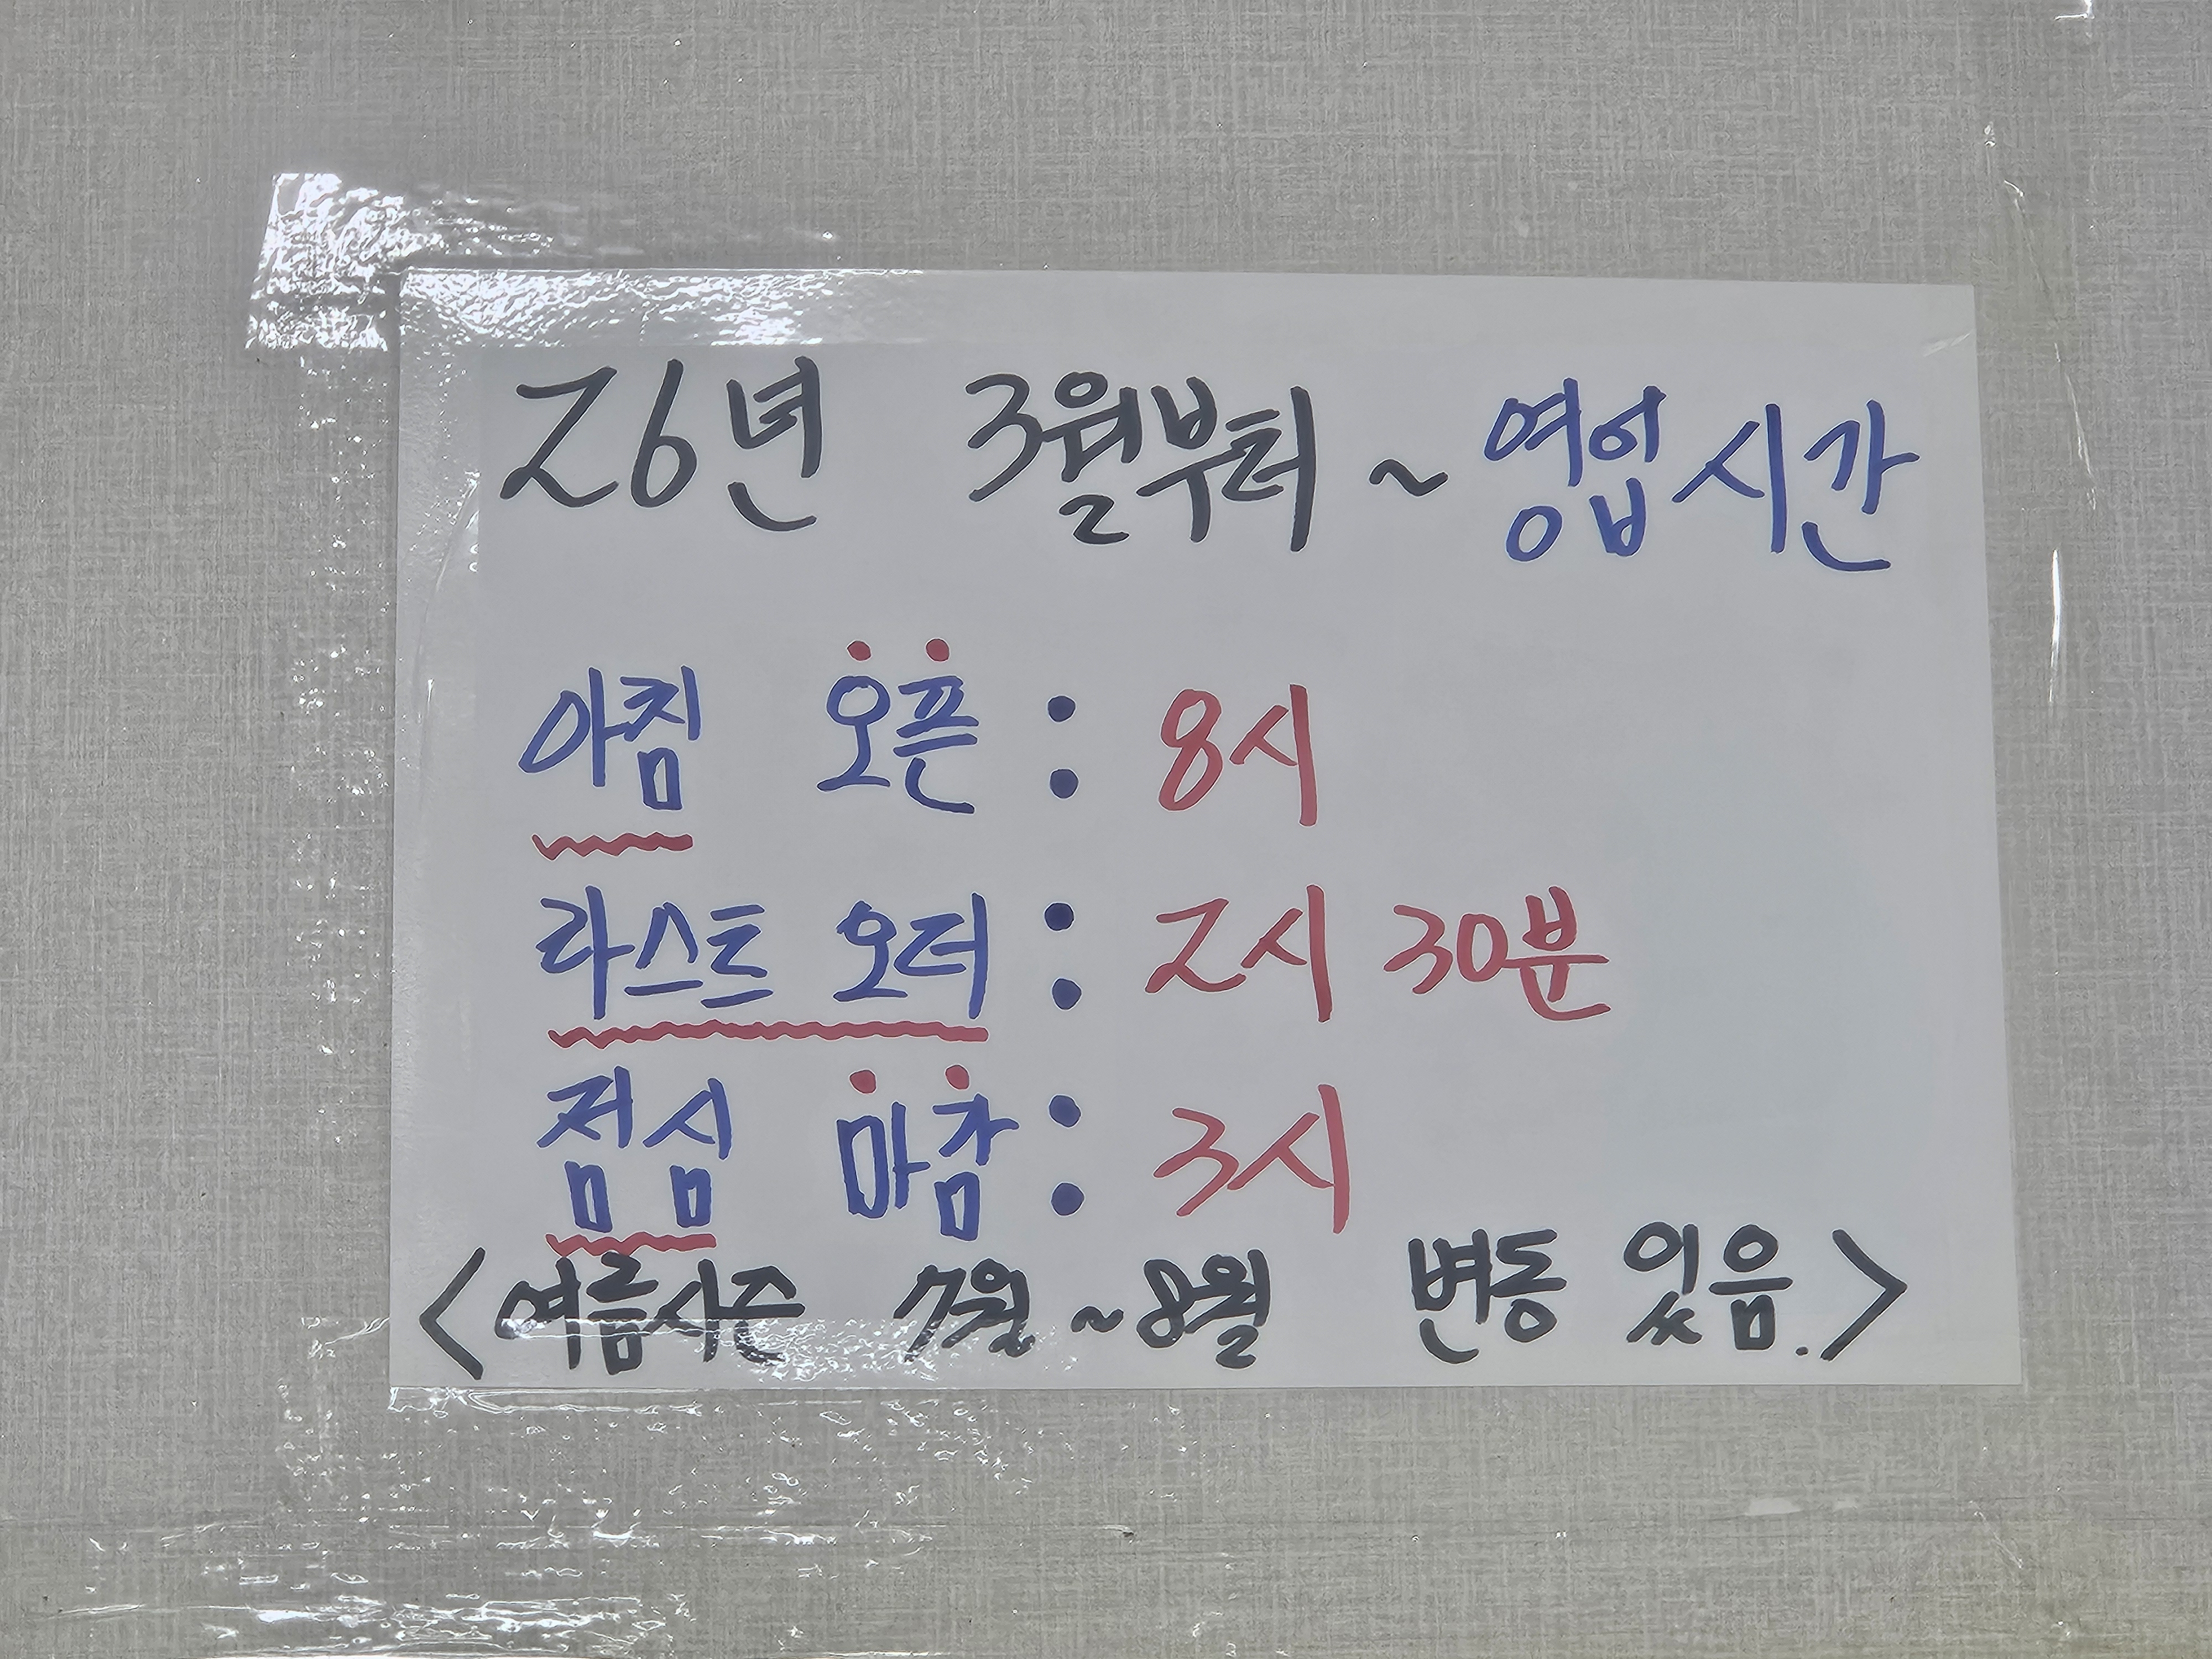 26년 3월부터 ~ 영업시간
아침 오픈 : 8시
라스트 오더 : 2시 30분
점심 마참 : 3시
<여름시즌 7월 ~8월 변동 있음.>